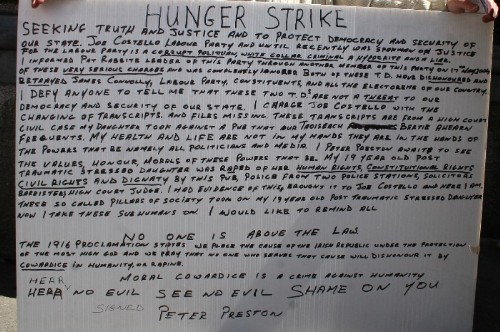 HUNGER STRIKE
SEEKING TRUTH AND JUSTICE AND TO PROTECT DEMOCRACY AND SECURITY OF
OUR STATE. JOE COSTELLO LABOUR PARTY AND UNTIL RECENTLY WAS SPOKSMAN ON JUSTICE
FOR LABOUR PARTY IS A CORRUPT POLITICIAN, WHITE COLLAR CRIMINAL A HYPOCRITE AND A LIAR.
I INFORMED PAT RABBITE LEADER OF THIS PARTY THROUGH ANOTHER MEMBER OF THIS PARTY ON
OF THESE VERY SERIOUS CHARGES AND WAS COMPLETELY IGNORED BOTH OF THESE T.D. HAVE DISHONOURED &
BETRAYED JAMES CONNOLLY, LABOUR PARTY, CONSTITUENTS, AND ALL THE ELECTORATE OF OUR COUNTRY.
I DEFY ANYONE TO TELL ME THAT THESE TWO T.D'S ARE NOT A THREAT TO OUR
DEMOCRACY AND SECURITY OF OUR STATE. I CHARGE JOE COSTELLO WITH THE
CHANGING OF TRANSCRIPTS. AND FILES MISSING THESE TRANSCRIPTS ARE FROM A HIGH COURT
CIVIL CASE MY DAUGHTER TOOK AGAINST A PUB THAT OUR TAOISEACH BERTIE AHEARN
FREQUENTS. MY HEALTH AND LIFE ARE NOT IN MY HANDS THEY ARE IN THE HANDS OF
THE POWERS THAT BE NAMELY ALL POLITICIANS AND MEDIA. I PETER PRESTON AWAIT TO SEE
THE VALUES, HONOUR, MORALS OF THESE POWERS THAT BE. MY 19 YEAR OLD POST
TRAUMATIC STRESSED DAUGHTER WAS RAPED OF HER HUMAN RIGHTS, CONSTITUTIONAL RIGHTS
CIVIL RIGHTS AND DIGNITY BY THIS PUB, POLICE FROM TWO POLICE STATIONS, SOLICITORS
BARRISTERS, HIGH COURT JUDGE. I HAD EVIDENCE OF THIS, BROUGHT IT TO JOE COSTELLO AND HERE I AM.
THESE SO CALLED PILLARS OF SOCIETY TOOK ON MY 19 YEAR OLD POST TRAUMATIC STRESSED DAUGHTER
NOW I TAKE THESE SUBHUMANS ON I WOULD LIKE TO REMIND ALL
NO ONE IS ABOVE THE LAW
THE 1916 PROCLAMATION STATES WE PLACE THE CAUSE OF THE IRISH REPUBLIC UNDER THE PROTECTION
OF THE MOST HIGH GOD AND WE PRAY THAT NO ONE WHO SERVES THAT CAUSE WILL DISHONOUR IT BY
COWARDICE IN HUMANITY, OR RAPINE.
MORAL COWARDICE IS A CRIME AGAINST HUMANITY
HEAR
HEAR NO EVIL SEE NO EVIL SHAME ON YOU
SIGNED PETER PRESTON